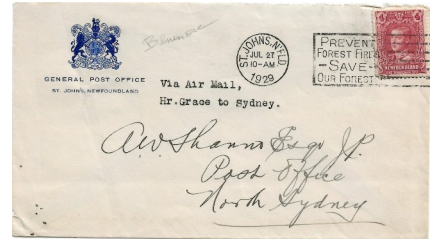 GENERAL POST OFFICE
ST. JOHN'S, NEWFOUNDLAND
ST. JOHN'S. N'F'LD
JUL 27
10-AM
1929
PREVENT
FOREST FIRES
-SAVE-
OUR FOREST
NEWFOUNDLAND
Via Air Mail,
Hr.Grace to Sydney.
A.W. Shanno Esqr J.P.
Post Office
North Sydney